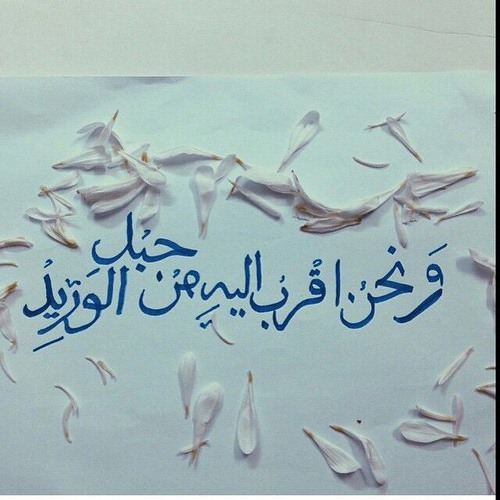 وَنحنُ اقْربُ اليهِ مِنْ حبْلِ الوَرِيدِْ